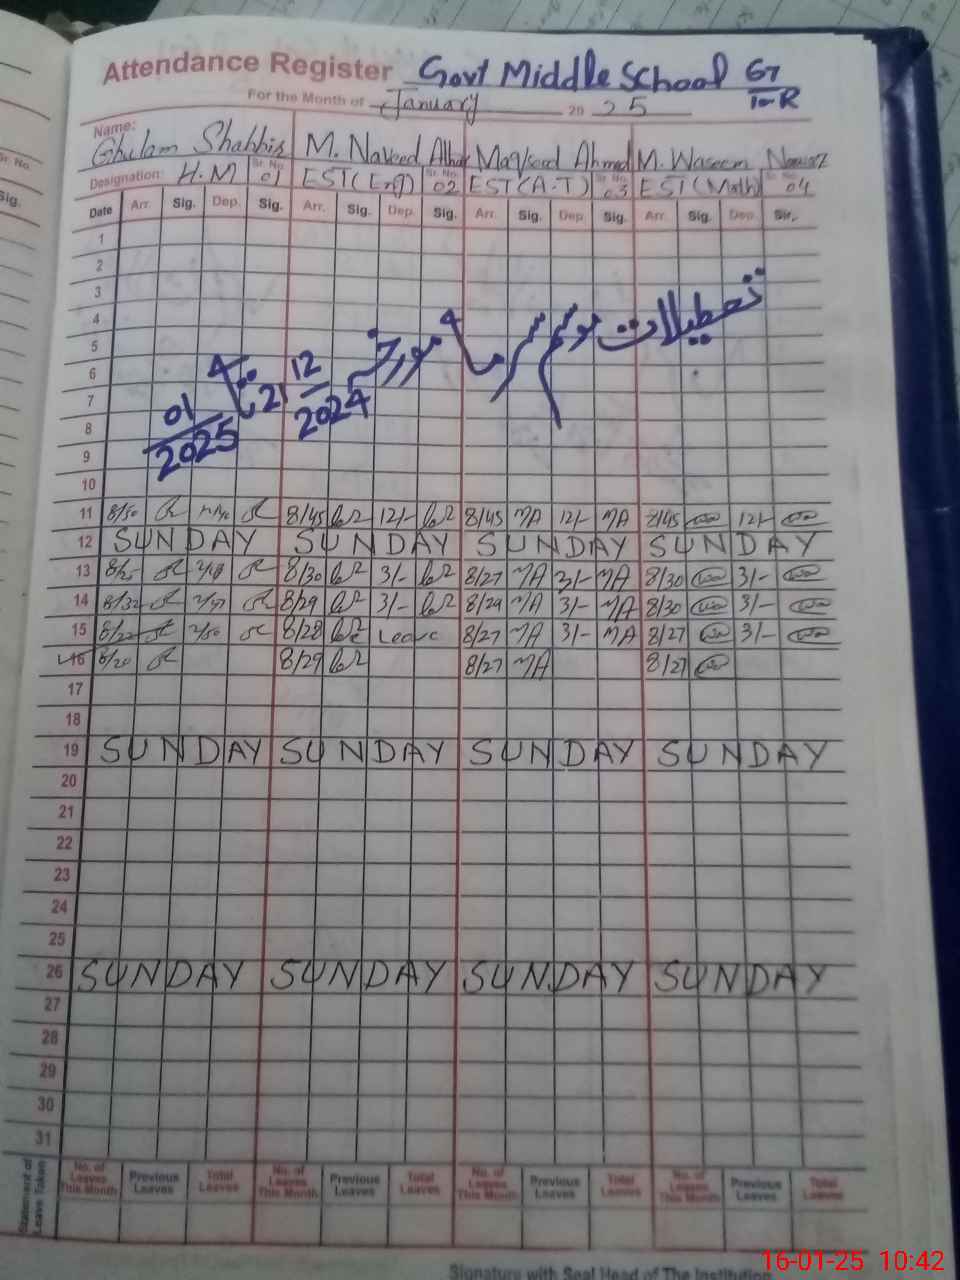 Attendance Register Govt Middle School G7
T-R
For the Month of January 20 25
Name: Ghulam Shabbir M. Naveed Athar Maqsood Ahmed M. Waseem Nawaz
Designation: H.M Sr. No. 01 EST (Eng) Sr. No. 02 EST (A.T) Sr. No. 03 EST (Math) Sr. No. 04
Date Arr. Sig. Dep. Sig. Arr. Sig. Dep. Sig. Arr. Sig. Dep. Sig. Arr. Sig. Dep. Sir.
1
2
3
4
5
6
7
8
9
10
تعطیلات موسم سرما مورخہ 21 12/2024 تا 01/2025
11 8/45 12/- 8/45 MA 12/- MA 8/45 12/-
12 SUNDAY SUNDAY SUNDAY SUNDAY
13 8/30 3/- 8/27 MA 3/- MA 8/30 3/-
14 8/32 8/29 3/- 8/29 MA 3/- MA 8/30 3/-
15 8/22 2/50 8/28 Leave 8/27 MA 3/- MA 8/27 3/-
16 8/20 8/29 8/27 MA 8/27
17
18
19 SUNDAY SUNDAY SUNDAY SUNDAY
20
21
22
23
24
25
26 SUNDAY SUNDAY SUNDAY SUNDAY
27
28
29
30
31
Statement of Leave Taken No. of Leaves This Month Previous Leaves Total Leaves No. of Leaves This Month Previous Leaves Total Leaves No. of Leaves This Month Previous Leaves Total Leaves No. of Leaves This Month Previous Leaves Total Leaves
Signature with Seal Head of The Institution
16-01-25 10:42